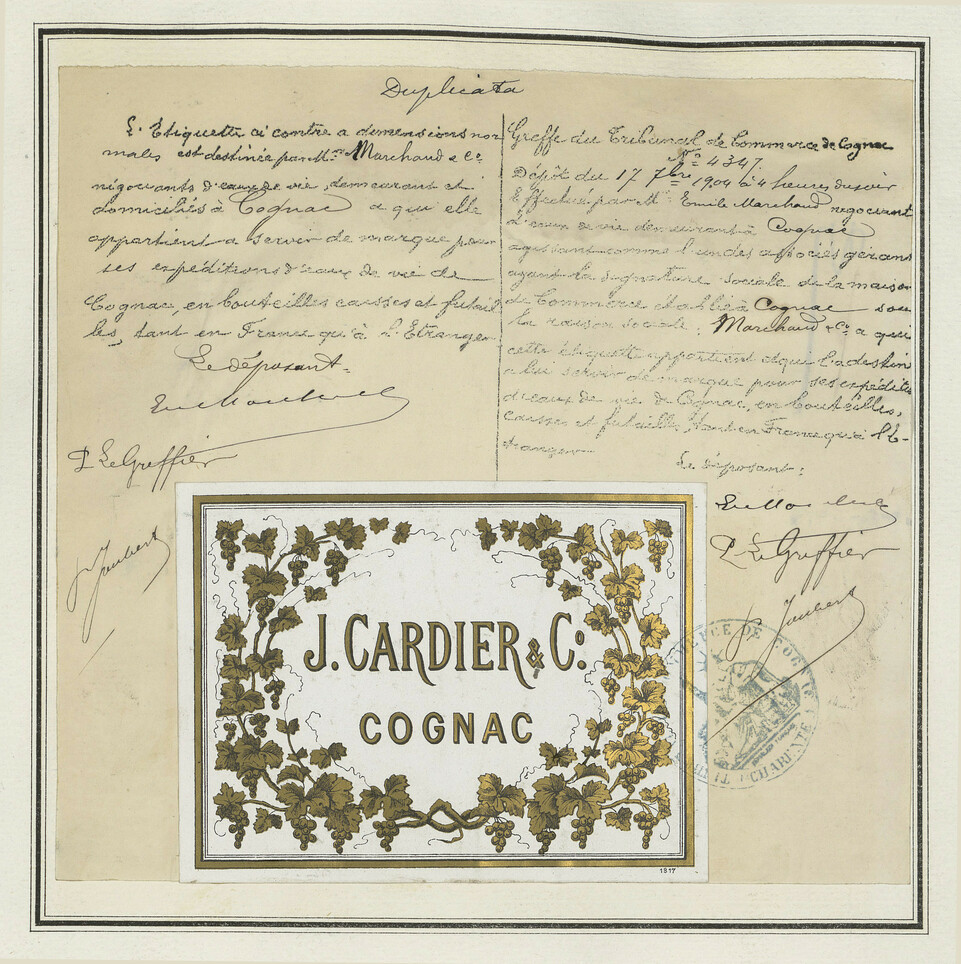 Duplicata
L'Etiquette ci contre a dimensions nor
males est destinée par Mrs Marchaud & Co
négociants d'eaux de vie, demeurant et
domiciliés à Cognac a qui elle
appartient a servir de marque pour
ses expéditions d'eaux de vie de
Cognac, en bouteilles caisses et futail
les, tant en France qu'à L'Etranger
Le déposant.
P. Le Greffier
Joubert
Greffe du Tribunal de Commerce de Cognac
No 4347.
Dépôt du 17 7bre 1904 à 4 heures du soir
Effectué par Mr Emile Marchaud négociant
d'eaux de vie demeurant à Cognac
agissant comme l'un des associés gérans
ayant la signature sociale de la maison
de Commerce établie à Cognac sous
la raison sociale: Marchaud & Co a qui
cette étiquette appartient et qui l'a destin
à lui servir de marque pour ses expéditi
d'eaux de vie de Cognac, en bouteilles,
caisses et futailles, tant en France qu'à l'E-
tranger
Le déposant:
P. Le Greffier
Joubert
J. CARDIER & Co.
COGNAC
1817
COMMERCE DE COGNAC
CHARENTE